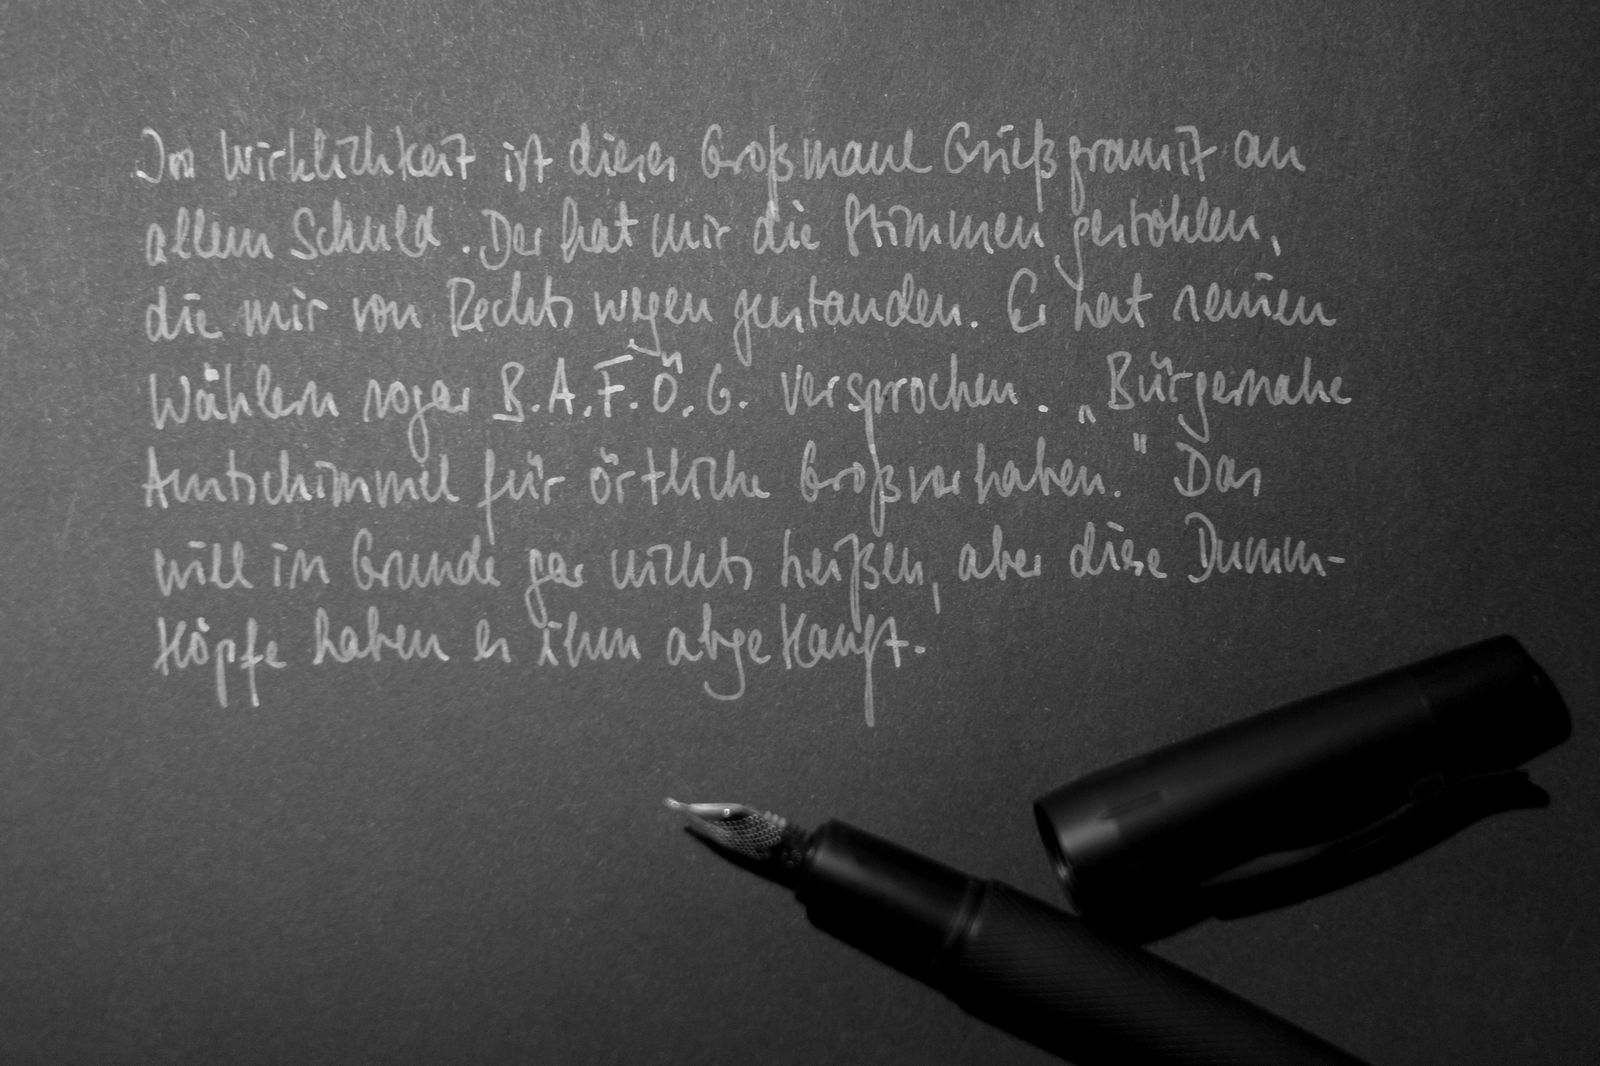 In Wirklichkeit ist dieses Großmaul Grießgramit an
allem Schuld. Der hat mir die Stimmen gestohlen,
die mir von Rechts wegen zustanden. Er hat seinen
Wählern sogar B.A.F.Ö.G. versprochen. „Bürgernahe
Amtschimmel für örtliche Großvorhaben." Das
will im Grunde gar nichts heißen, aber diese Dumm-
köpfe haben es ihm abgekauft.